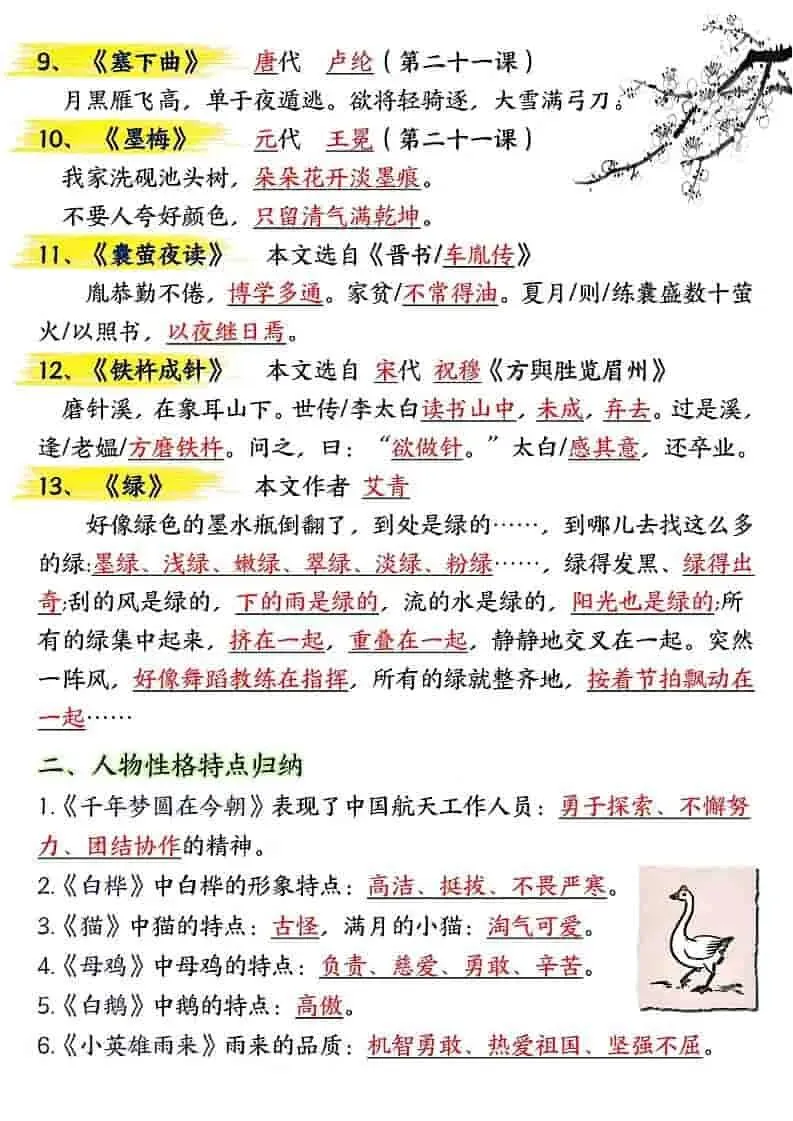 9、 《塞下曲》 唐代 卢纶（第二十一课）
月黑雁飞高，单于夜遁逃。欲将轻骑逐，大雪满弓刀。
10、 《墨梅》 元代 王冕（第二十一课）
我家洗砚池头树，朵朵花开淡墨痕。
不要人夸好颜色，只留清气满乾坤。
11、《囊萤夜读》 本文选自《晋书/车胤传》
胤恭勤不倦，博学多通。家贫/不常得油。夏月/则/练囊盛数十萤
火/以照书，以夜继日焉。
12、《铁杵成针》 本文选自 宋代 祝穆《方舆胜览眉州》
磨针溪，在象耳山下。世传/李太白读书山中，未成，弃去。过是溪，
逢/老媪/方磨铁杵。问之，曰：“欲做针。”太白/感其意，还卒业。
13、 《绿》 本文作者 艾青
好像绿色的墨水瓶倒翻了，到处是绿的……，到哪儿去找这么多
的绿:墨绿、浅绿、嫩绿、翠绿、淡绿、粉绿……，绿得发黑、绿得出
奇;刮的风是绿的，下的雨是绿的，流的水是绿的，阳光也是绿的;所
有的绿集中起来，挤在一起，重叠在一起，静静地交叉在一起。突然
一阵风，好像舞蹈教练在指挥，所有的绿就整齐地，按着节拍飘动在
一起……
二、人物性格特点归纳
1.《千年梦圆在今朝》表现了中国航天工作人员：勇于探索、不懈努
力、团结协作的精神。
2.《白桦》中白桦的形象特点：高洁、挺拔、不畏严寒。
3.《猫》中猫的特点：古怪，满月的小猫：淘气可爱。
4.《母鸡》中母鸡的特点：负责、慈爱、勇敢、辛苦。
5.《白鹅》中鹅的特点：高傲。
6.《小英雄雨来》雨来的品质：机智勇敢、热爱祖国、坚强不屈。